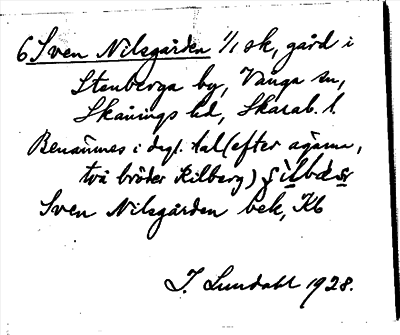 6 Sven Nilsgården 1/1 sk, gård i
Stenberga by, Vånga sn,
Skånings hd, Skarab. l.
Benämnes i dagl. tal (efter ägarna,
två bröder Kilberg)
Sven Nilsgården bek, Kb
J. Lundahl 1928.